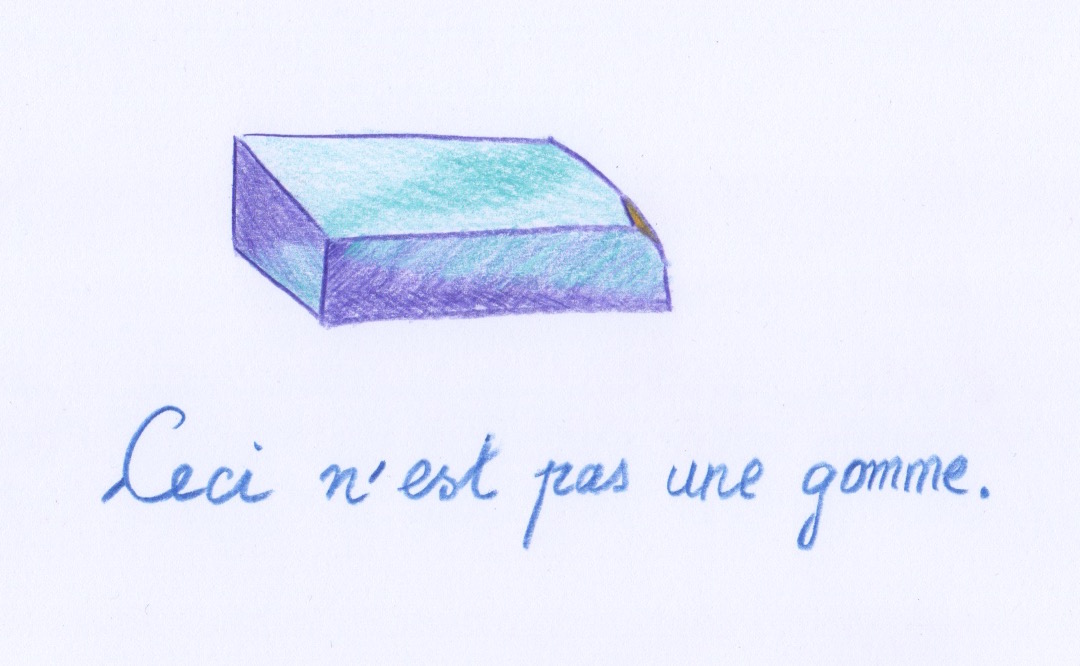 Ceci n'est pas une gomme.